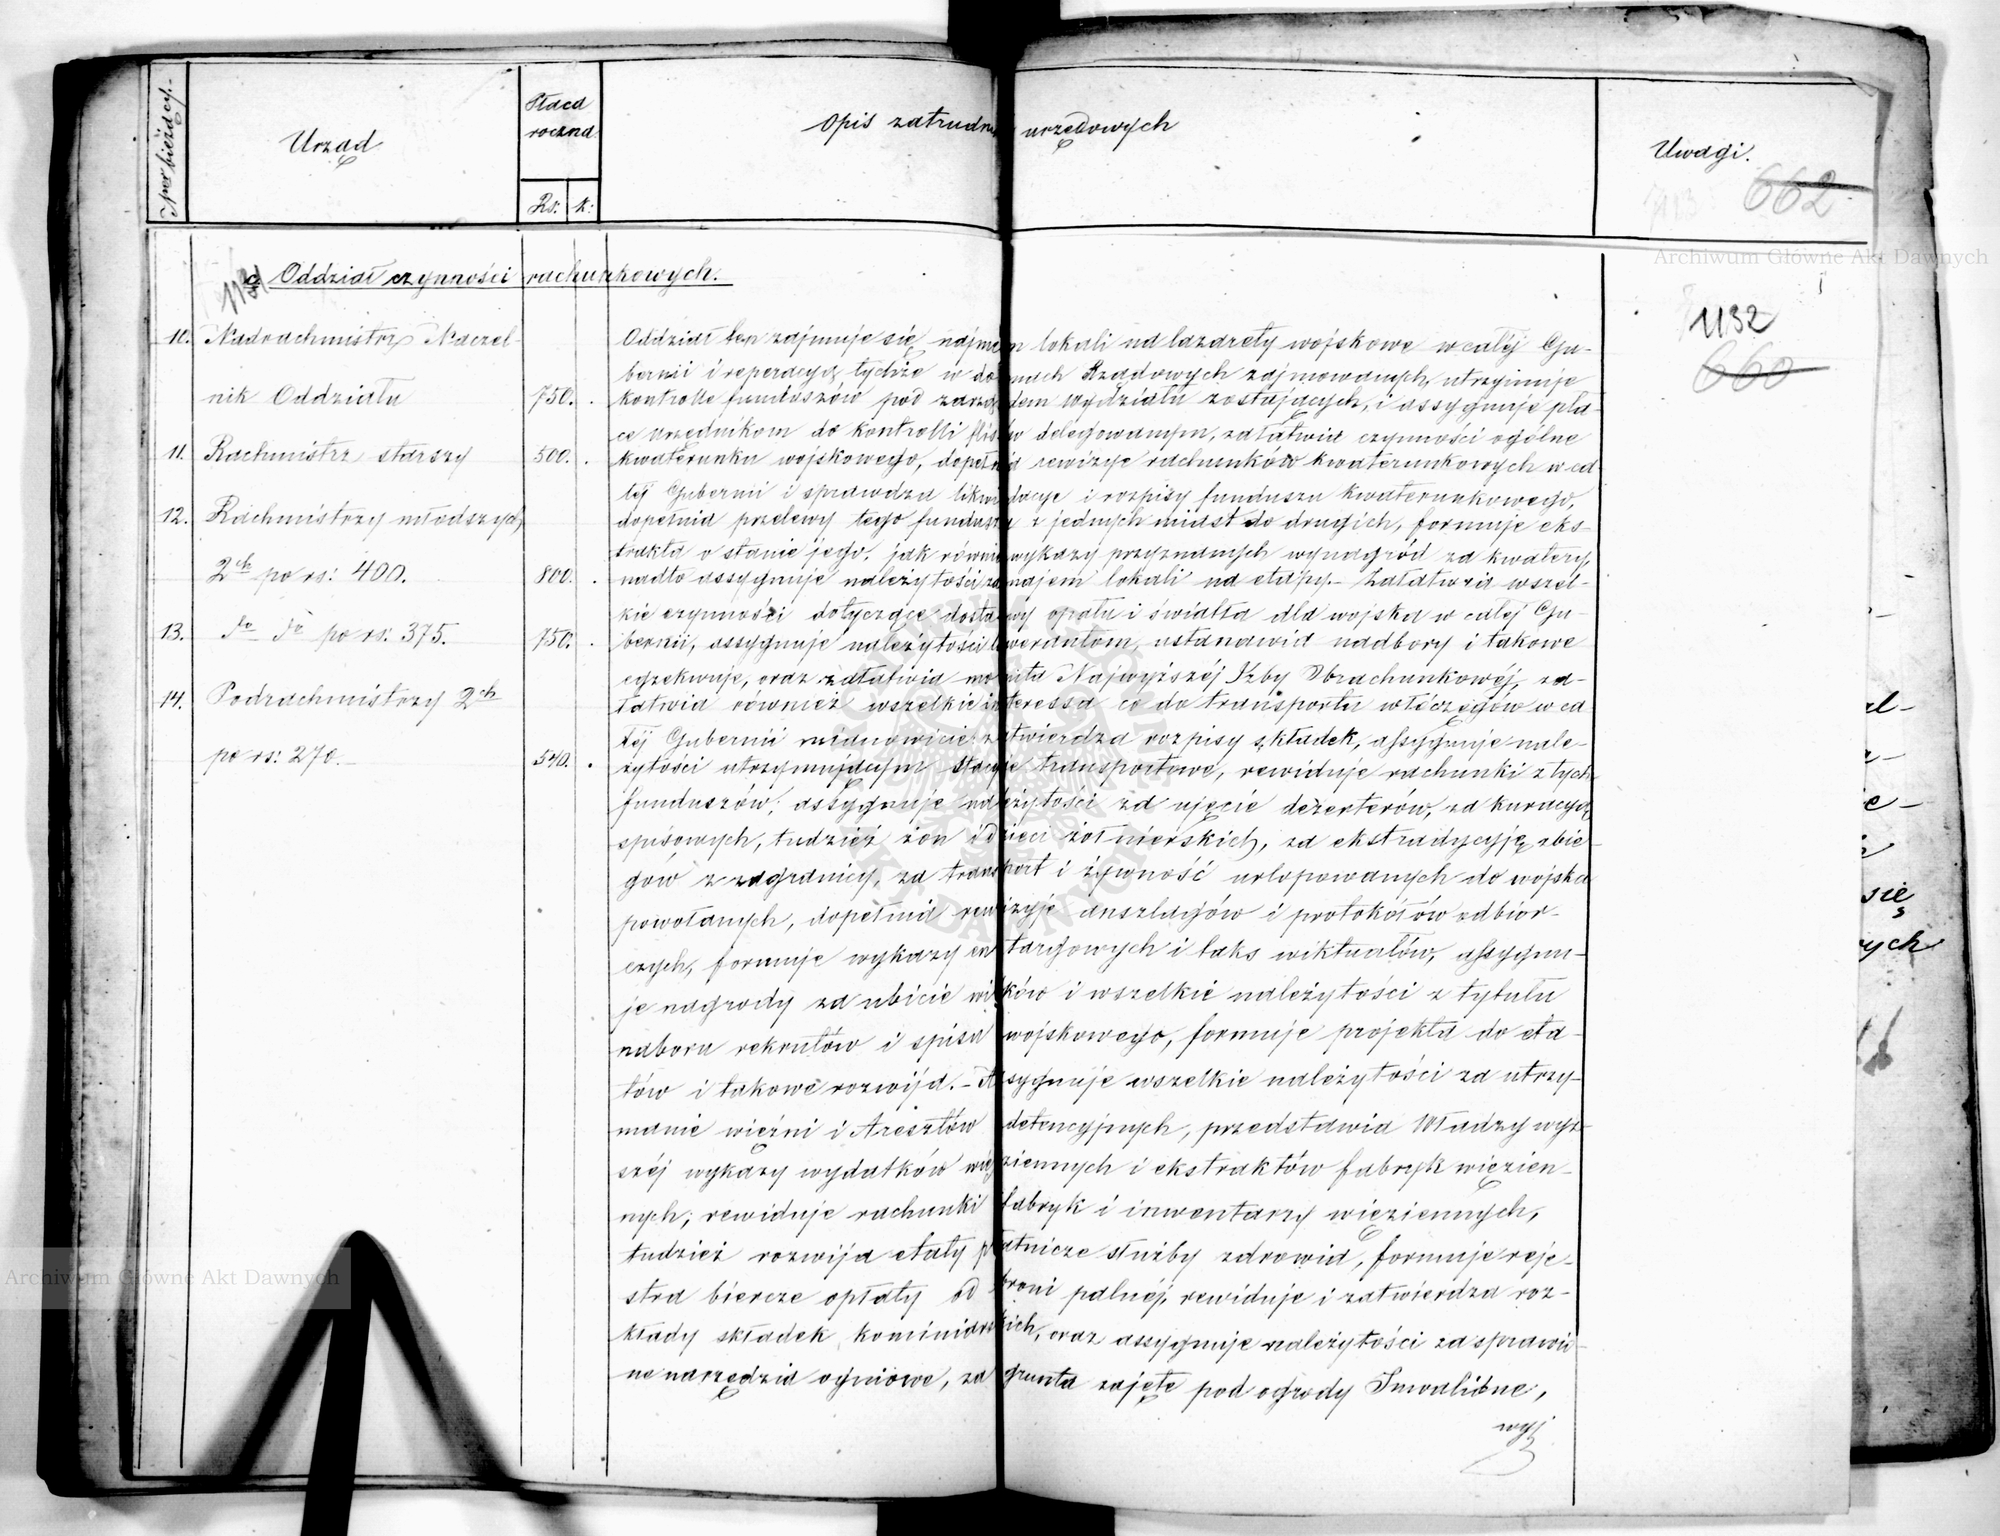 Nder bieżący.
Urząd
Płaca
roczna
Rs: k:
Opis zatrudnień urzędowych
Uwagi.
662
Archiwum Główne Akt Dawnych
1131
c, Oddział czynności rachunkowych.
1132
660
10. Nadrachmistrz Naczel-
nik Oddziału 750.
11. Rachmistrz starszy 500.
12. Rachmistrzy młodszych
2ch po rs: 400. 800.
13. do do po rs: 375. 750.
14. Podrachmistrzy 2ch
po rs: 270. 540.
Oddział ten zajmuje się najmem lokali na lazarety wojskowe w całej Gu-
bernii i reperacyą tychże w domach Rządowych zajmowanych, utrzymuje
kontrolle funduszów pod zarządem wydziału zostających, i assygnuje pła-
ce urzędnikom do kontrolli flisów delegowanym, załatwia czynności ogólne
kwaterunku wojskowego, dopełnia rewizye rachunków kwaterunkowych w ca-
łej Gubernii i sprawdza likwidacye i rozpisy funduszu kwaterunkowego,
dopełnia przelewy tego funduszu z jednych miast do drugich, formuje eks-
trakta o stanie jego, jak równie wykazy przyznanych wynagród za kwatery,
nadto assygnuje należytości za najem lokali na etapy. – Załatwia wszel-
kie czynności dotyczące dostawy opału i światła dla wojska w całej Gu-
bernii, assygnuje należytości liwerantom, ustanawia nadbory i takowe
egzekwuje, oraz załatwia monita Najwyższéj Izby Obrachunkowéj, za-
łatwia również wszelkie interessa co do transportu włóczęgów w ca-
łej Gubernii mianowicie: zatwierdza rozpisy składek, assygnuje nale-
żytości utrzymującym stacye transportowe, rewiduje rachunki z tych
funduszów; assygnuje należytości za ujęcie dezerterów, za kuracyą
spisowych, tudzież żon i dzieci żołnierskich, za ekstradycyję zbie-
gów z zagranicy, za transport i żywność urlopowanych do wojska
powołanych, dopełnia rewizyje anszlagów i protokółów odbior-
czych, formuje wykazy cen targowych i taks wiktuałów, assygnu-
je nagrody za ubicie wilków i wszelkie należytości z tytułu
naboru rekrutów i spisu wojskowego, formuje projekta do eta-
tów i takowe rozwija. – Assygnuje wszelkie należytości za utrzy-
manie więźni i Aresztów detencyjnych, przedstawia Władzy wyż-
széj wykazy wydatków więziennych i ekstraktów fabryk więzien-
nych; rewiduje rachunki fabryk i inwentarzy więziennych,
tudzież rozwija etaty płatnicze służby zdrowia, formuje reje-
stra biercze opłaty od broni palnéj, rewiduje i zatwierdza roz-
kłady składek kominiarskich, oraz assygnuje należytości za sprawio-
ne narzędzia ogniowe, za grunta zajęte pod ogrody Inwalidne,
wyj
al-
e-
się
ych
Archiwum Główne Akt Dawnych